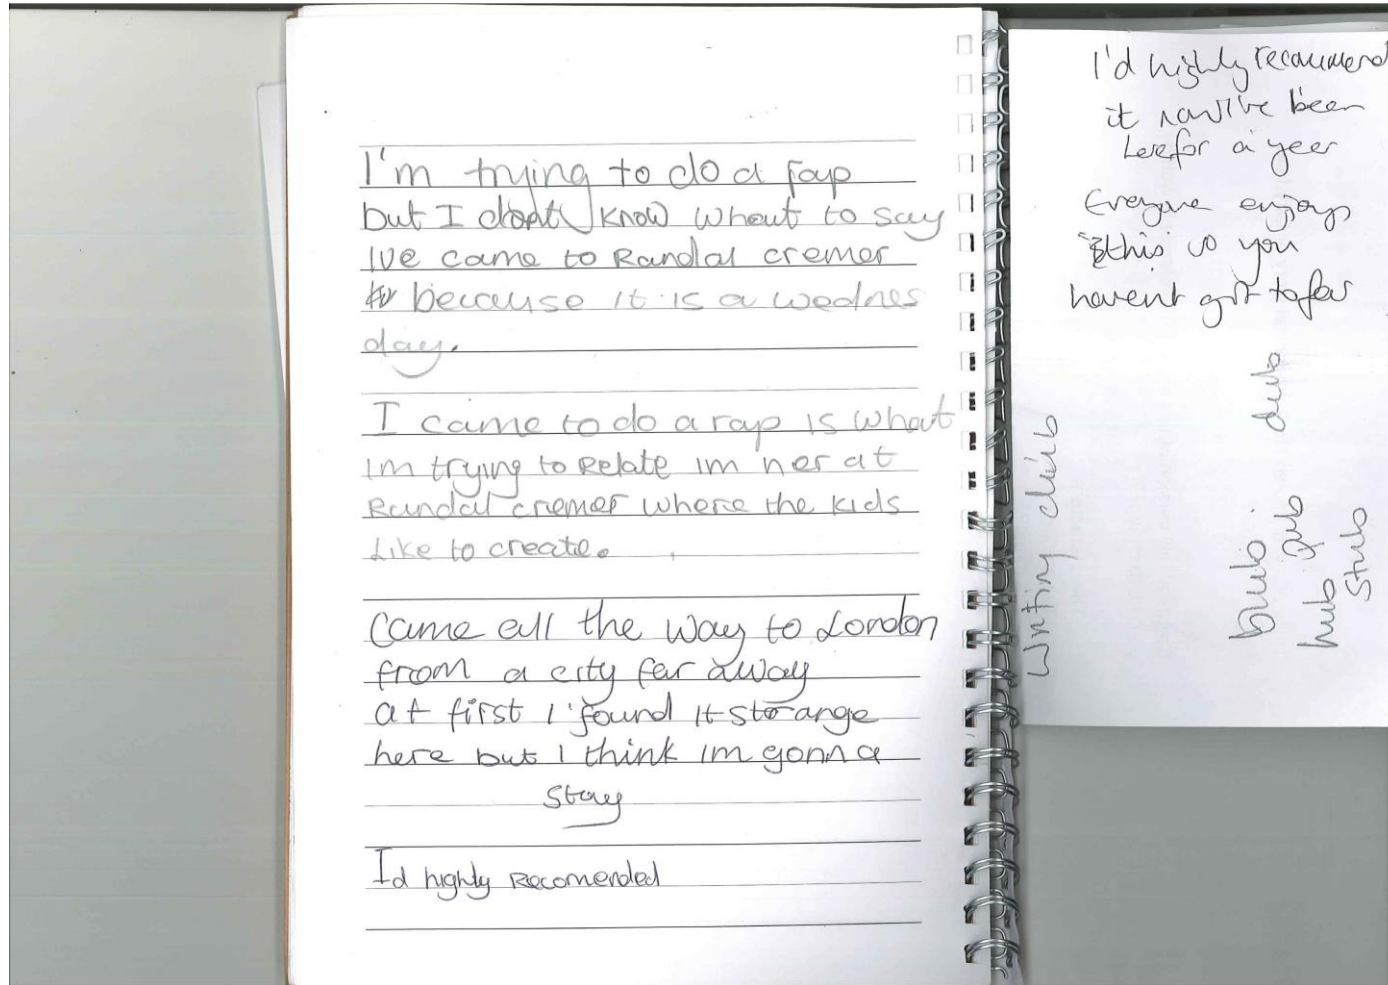 I'm trying to do a rap
but I dont know whout to say
Ive came to Randal cremer
because it is a wednes
day.
I came to do a rap is what
im trying to Relate im her at
Randal cremer where the kids
Like to create.
Came all the way to London
from a city far away
at first I found it strange
here but I think im gonna
stay
Id highly Recomended
I'd highly recommend
it now I've been
here for a year
Everyone enjoys
this so you
havent got to fear
Writing club
dub
bub
pub
hub
Stub